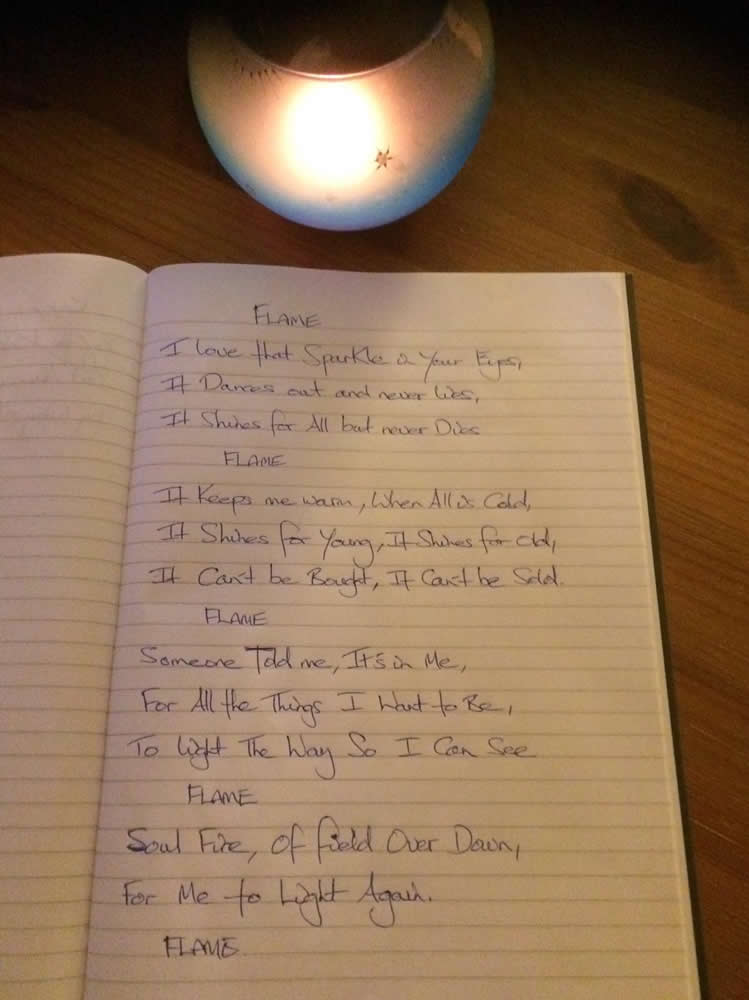 FLAME
I love that Sparkle in Your Eyes,
It Dances out and never Lies,
It Shines for All but never Dies
FLAME
It Keeps me warm, When All is Cold,
It Shines for Young, It Shines for Old,
It Can't be Bought, It Can't be Sold.
FLAME
Someone Told me, It's in Me,
For All the Things I Want to Be,
To Light The Way So I Can See
FLAME
Soul Fire, Of field Over Down,
For Me to Light Again.
FLAME